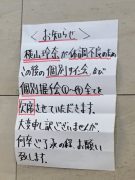 ＜お知らせ＞
横山玲奈が体調不良のため
この後の個別サイン会、及び
個別握手会①〜④全てを
欠席させていただきます。
大変申し訳ございませんが、
何卒ご了承の程、お願い
致します。